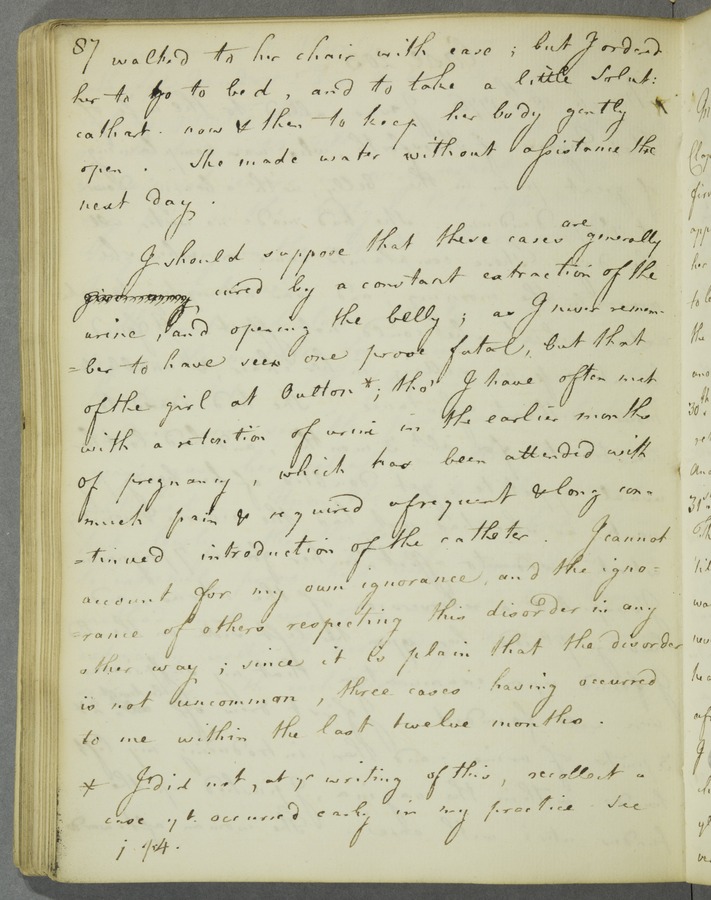 87 walked to her chair with ease ; but I orderd
her to go to bed , and to take a little Solut:
cathart. now & then to keep her body gently
open . She made water without assistance the
next day .
I should suppose that these cases are generally
cured by a constant extraction of the
urine , and opening the belly ; as I never remem-
=ber to have seen one prove fatal , but that
of the girl at Oulton * ; tho' I have often met
with a retention of urine in the earlier months
of pregnancy , which has been attended with
much pain & required a frequent & long con=
=tinued introduction of the catheter . I cannot
account for my own ignorance , and the igno=
=rance of others respecting this disorder in any
other way ; since it is plain that the disorder
is not uncommon , three cases having occurred
to me within the last twelve months .
* I did not , at ye writing of this , recollect a
case yt. occurred early in my practice see